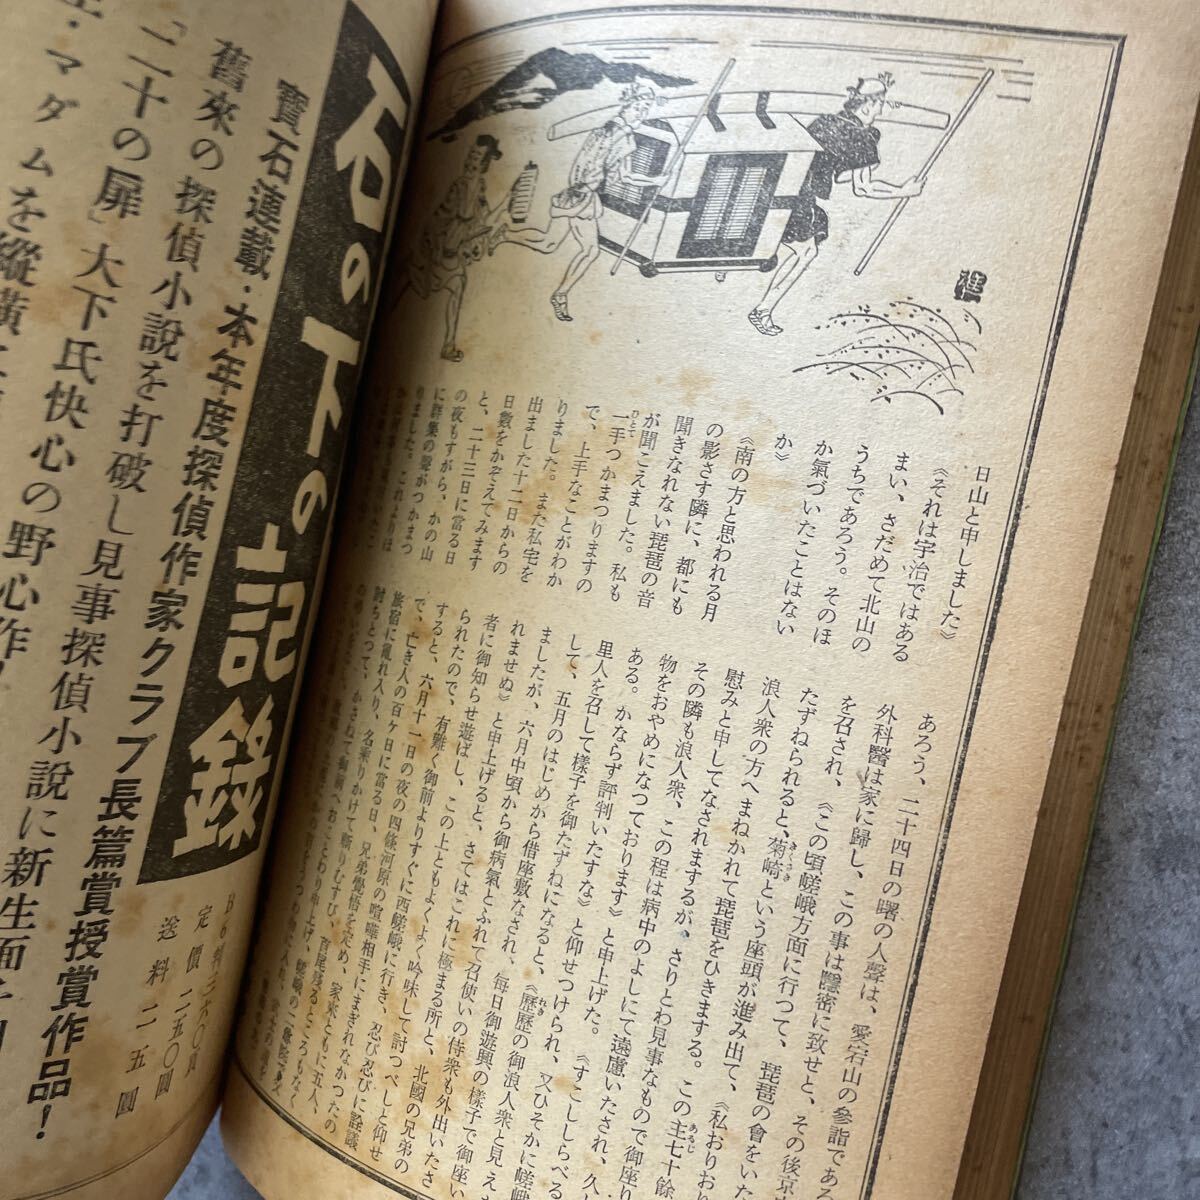 日山と申しました》
《それは宇治ではある
まい、さだめて北山の
うちであろう。そのほ
か氣づいたことはない
か》
《南の方と思われる月
の影さす隣に、都にも
聞きなれない琵琶の音
が聞こえました。私も
一手つかまつりますの
で、上手なことがわか
りました。また私宅を
出ました十二日からの
日數をかぞえてみます
と、二十三日に當る日
の夜もすがら、かの山
に群集の聲がつかまつ
りました。これよりほ
あろう、二十四日の曙の人聲は、愛宕山の參詣であろ
外科醫は家に歸し、この事は隱密に致せと、その後京
を召され、《この頃嵯峨方面に行つて、琵琶の會をいた
たずねられると、菊崎という座頭が進み出て、《私おりおり
浪人衆の方へまねかれて琵琶をひきまする。この主七十餘
慰みと申してなされまするが、さりとわ見事なもので御座り
その隣も浪人衆、この程は病中のよしにて遠慮いたされ、久
物をおやめになつております》と申上げた。《すこししらべる
ある。かならず評判いたすな》と仰せつけられ、又ひそかに嵯峨
里人を召して樣子を御たずねになると、《歷歷の御浪人衆と見え
して、五月のはじめから借座敷なされ、毎日御遊興の樣子で御座い
ましたが、六月中頃から御病氣とふれて召使いの侍衆も外出いたさ
れませぬ》と申上げると、さてはこれに極まる所と、北國の兄弟の
者に御知らせ遊ばし、この上ともよくよく吟味して討つべしと仰せ
られたので、有難く御前よりすぐに西嵯峨に行き、忍び忍びに詮議
すると、六月十一日の夜の四條河原の喧嘩相手にまぎれなかつたの
で、亡き人の百ケ日に當る日、兄弟覺悟を定め、家來ともに五人、
旅宿に亂れ入り、名乘りかけて斬りむすび、首尾殘るところもなく
討ちとつて、かさねて御前へおことわり申上げ、
石の下の記錄
寶石連載・本年度探偵作家クラブ長篇賞授賞作品！
舊來の探偵小說を打破し見事探偵小說に新生面
「二十の扉」大下氏快心の野心作！
マダムを縱橫
B6判三六〇頁
定價二五〇圓
送料二五圓